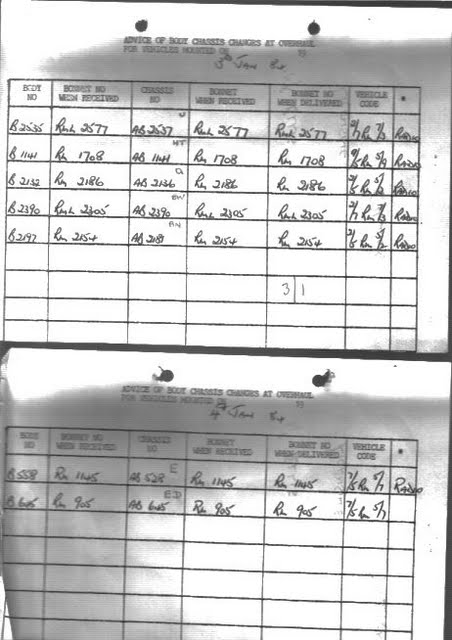 ADVICE OF BODY CHASSIS CHANGES AT OVERHAUL
FOR VEHICLES MOUNTED ON 19
3rd JAN 84
BODY NO BONNET NO WHEN RECEIVED CHASSIS NO BONNET WHEN RECEIVED BONNET NO WHEN DELIVERED VEHICLE CODE *
B2535 2577 AB 2537 2577 2577 RADIO
B1141 RM 1708 AB 1141 RM 1708 RM 1708 RADIO
B2132 RM 2186 AB 2136 RM 2186 RM 2186 RADIO
B2390 2305 AB 2390 2305 2305 RADIO
B2197 RM 2154 AB 2189 RM 2154 RM 2154 RADIO
3 1
ADVICE OF BODY CHASSIS CHANGES AT OVERHAUL
FOR VEHICLES MOUNTED ON 19
4th JAN 84
BODY NO BONNET NO WHEN RECEIVED CHASSIS NO BONNET WHEN RECEIVED BONNET NO WHEN DELIVERED VEHICLE CODE *
B558 RM 1145 AB 528 E RM 1145 RM 1145 7/5 RM 5/7 RADIO
B645 RM 905 AB 645 RM 905 RM 905 7/5 RM 5/7